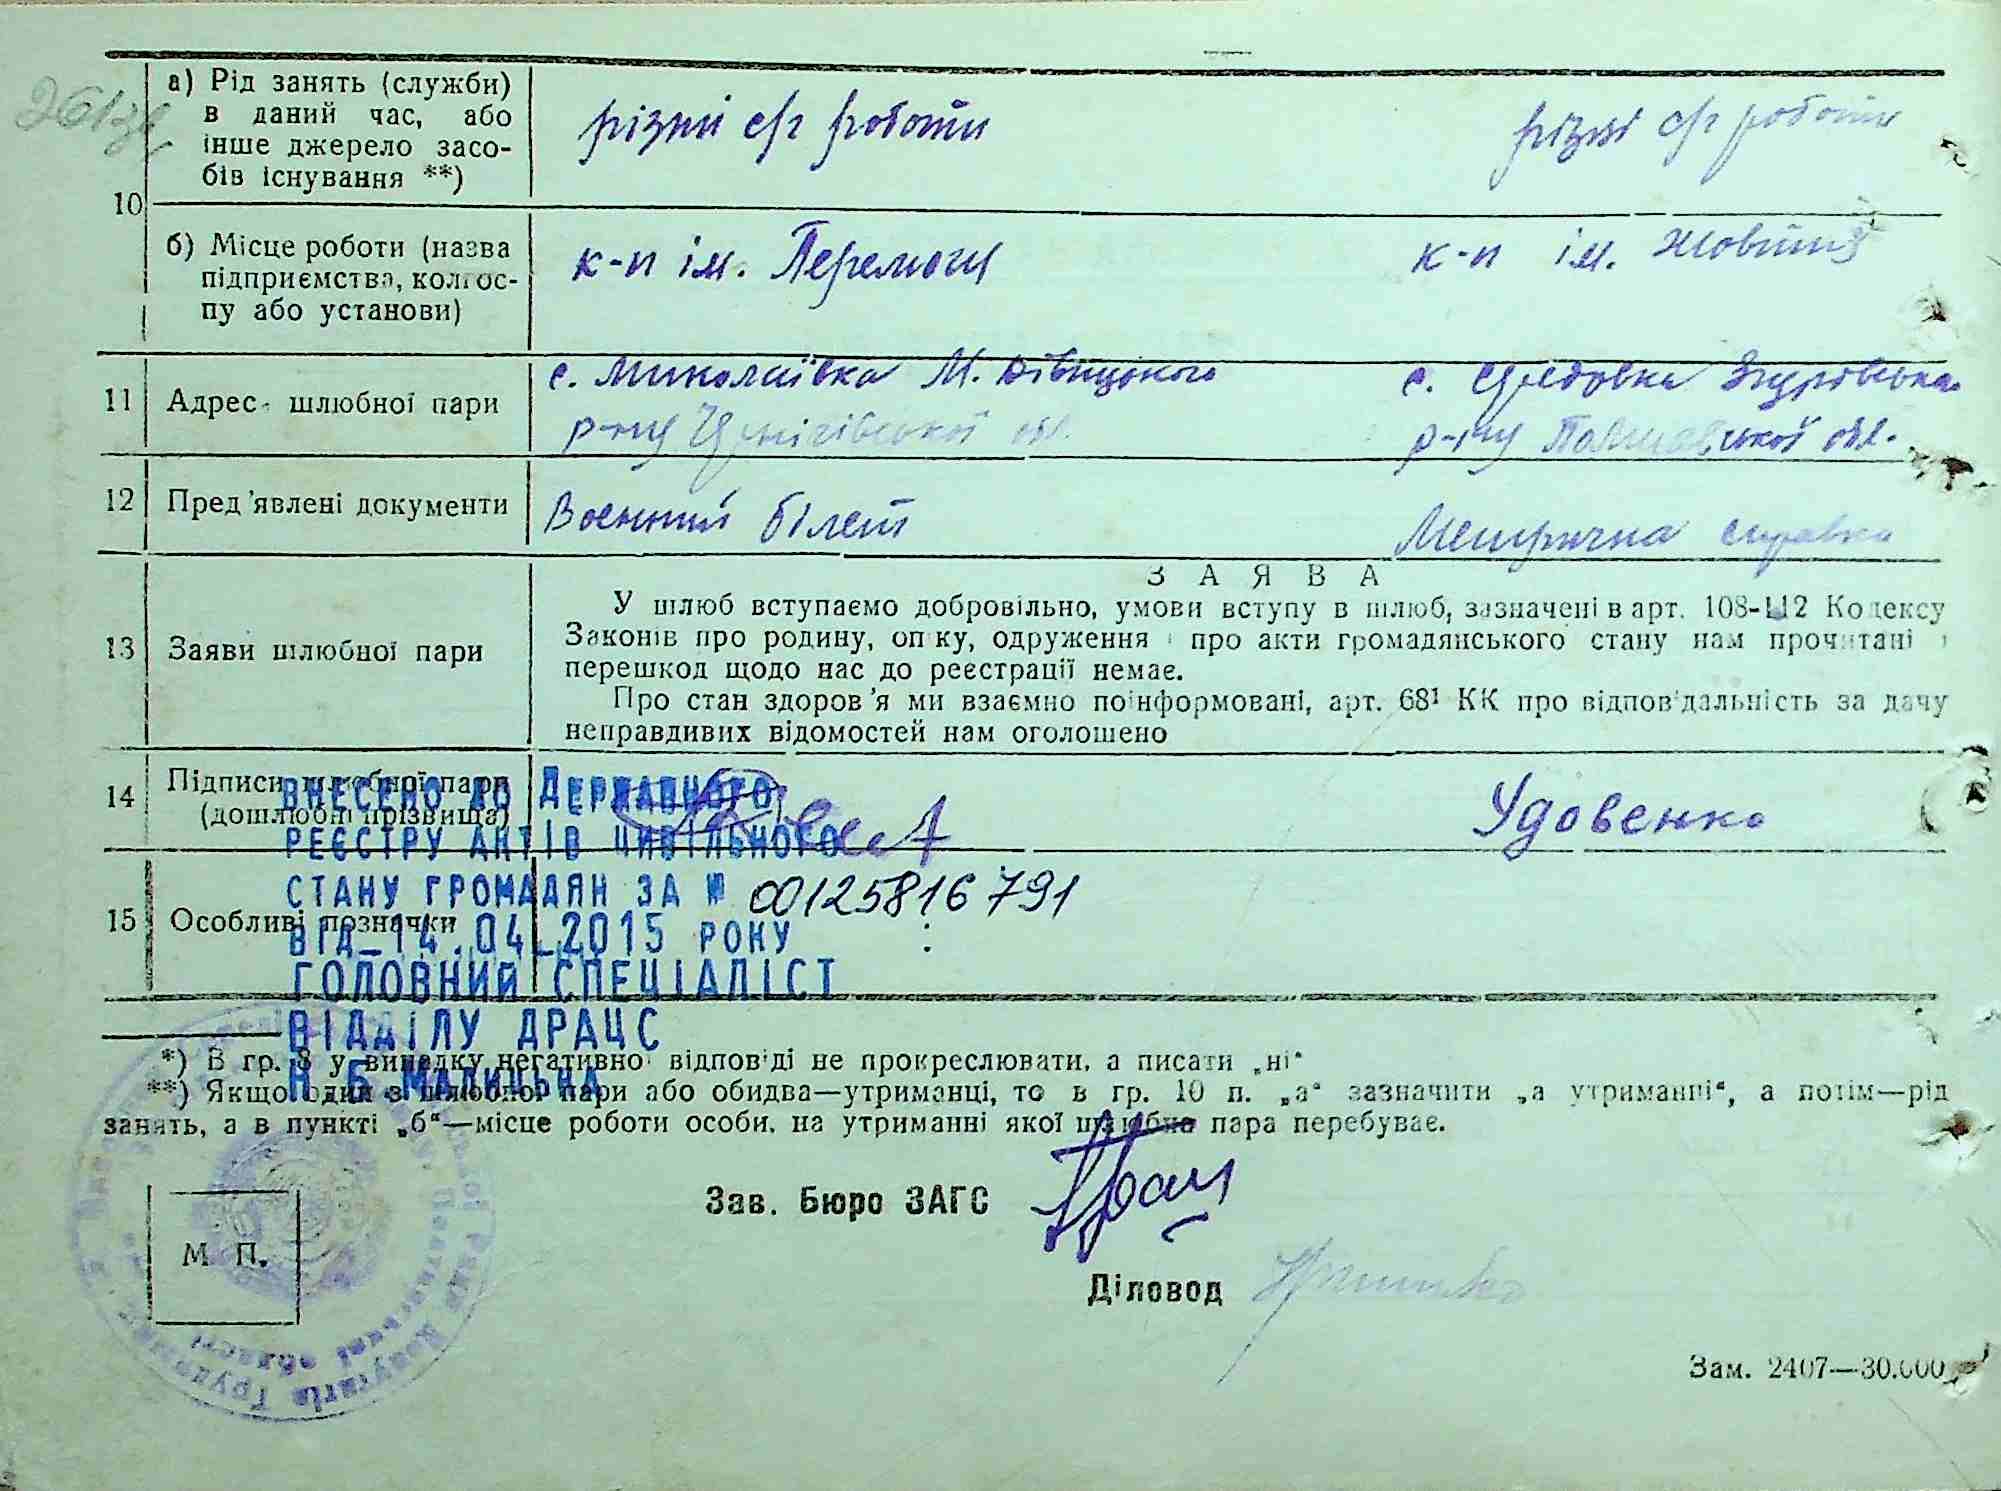 а) Рід занять (служби)
в даний час, або
інше джерело засо-
бів існування **)
різні с/г роботи
різні с/г роботи
10
б) Місце роботи (назва
підприємства, колгос-
пу або установи)
к-п ім. Перемоги
к-п ім. Жовтня
11
Адрес шлюбної пари
с. Миколаївка М. Дівицького
р-ну Чернігівської обл.
с. Середовка Згурівська
р-ну Полтавської обл.
12
Пред'явлені документи
Военний білет
Метрична справка
ЗАЯВА
13
Заяви шлюбної пари
У шлюб вступаємо добровільно, умови вступу в шлюб, зазначені в арт. 108-112 Кодексу
Законів про родину, опіку, одруження і про акти громадянського стану нам прочитані і
перешкод щодо нас до реєстрації немає.
Про стан здоров'я ми взаємно поінформовані, арт. 68¹ КК про відповідальність за дачу
неправдивих відомостей нам оголошено
14
Підписи шлюбної пари
(дошлюбні прізвища)
Удовенко
15
Особливі позначки
ВНЕСЕНО ДО ДЕРЖАВНОГО
РЕЄСТРУ АКТІВ ЦИВІЛЬНОГО
СТАНУ ГРОМАДЯН ЗА № 00125816791
ВІД 14.04.2015 РОКУ
ГОЛОВНИЙ СПЕЦІАЛІСТ
ВІДДІЛУ ДРАЦС
Н.Б.МАЛИЦЬКА
*) В гр. 8 у випадку негативної відповіді не прокреслювати, а писати „ні“
**) Якщо один з шлюбної пари або обидва—утриманці, то в гр. 10 п. „а“ зазначити „а утриманні“, а потім—рід
занять, а в пункті „б“—місце роботи особи, на утриманні якої шлюбна пара перебуває.
Зав. Бюро ЗАГС
М. П.
Діловод
Зам. 2407—30.000